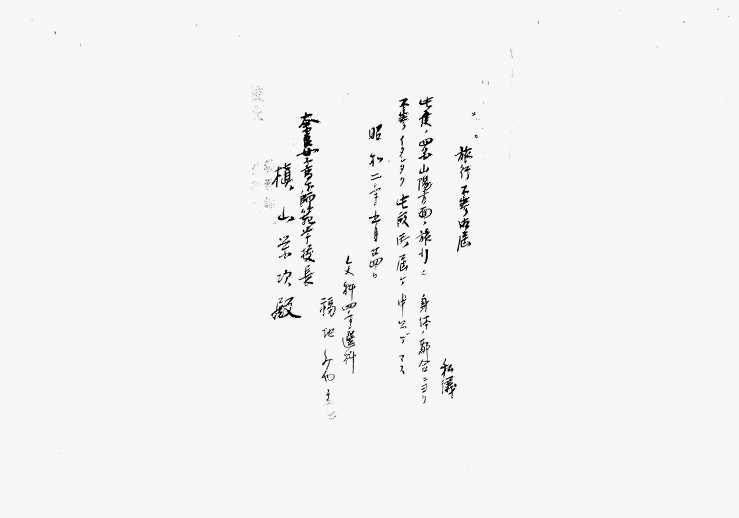 旅行不参加届
私儀
此度、四国山陽方面ノ旅行ニ身体ノ都合ニヨリ
不参イタシタク此段御届ケ申上ゲマス
昭和二年五月廿四日
文科四年選科
福地
奈良女子高等師範学校長
槙山栄次殿
校長